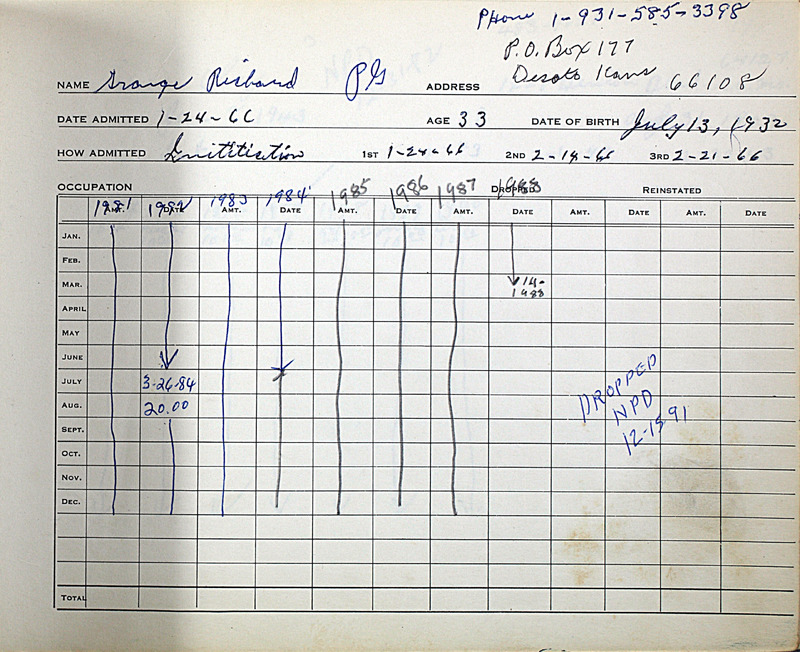 Phone 1-931-585-3398
P.O. Box 177
NAME Richard PG ADDRESS Desoto Kans 66108
DATE ADMITTED 1-24-66 AGE 33 DATE OF BIRTH July 13, 1932
HOW ADMITTED 1ST 1-24-66 2ND 2-14-66 3RD 2-21-66
OCCUPATION DROPPED REINSTATED
1981 1982 1983 1984 1985 1986 1987 1988
AMT. DATE AMT. DATE AMT. DATE AMT. DATE AMT. DATE AMT. DATE
JAN.
FEB.
MAR. 14-
1988
APRIL
MAY
JUNE
JULY 3-26-84
AUG. 20.00
SEPT.
OCT.
NOV.
DEC.
TOTAL
DROPPED
NPD
12-15-91